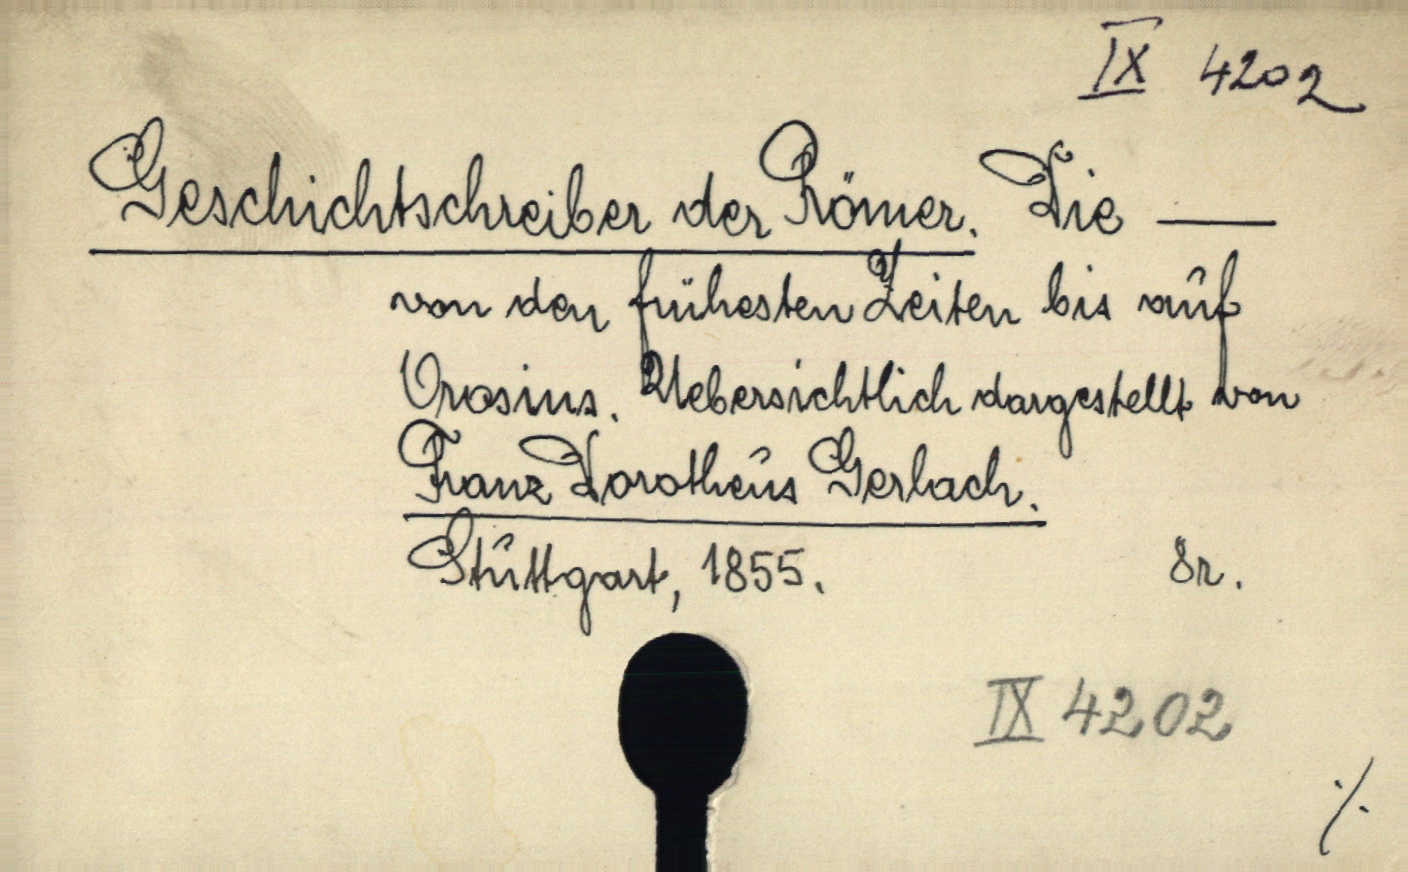 IX 4202
Geschichtschreiber der Römer. Die —
von den frühesten Zeiten bis auf
Orosius. Uebersichtlich dargestellt von
Franz Dorotheus Gerlach.
Stuttgart, 1855. 8r.
IX 4202
./.